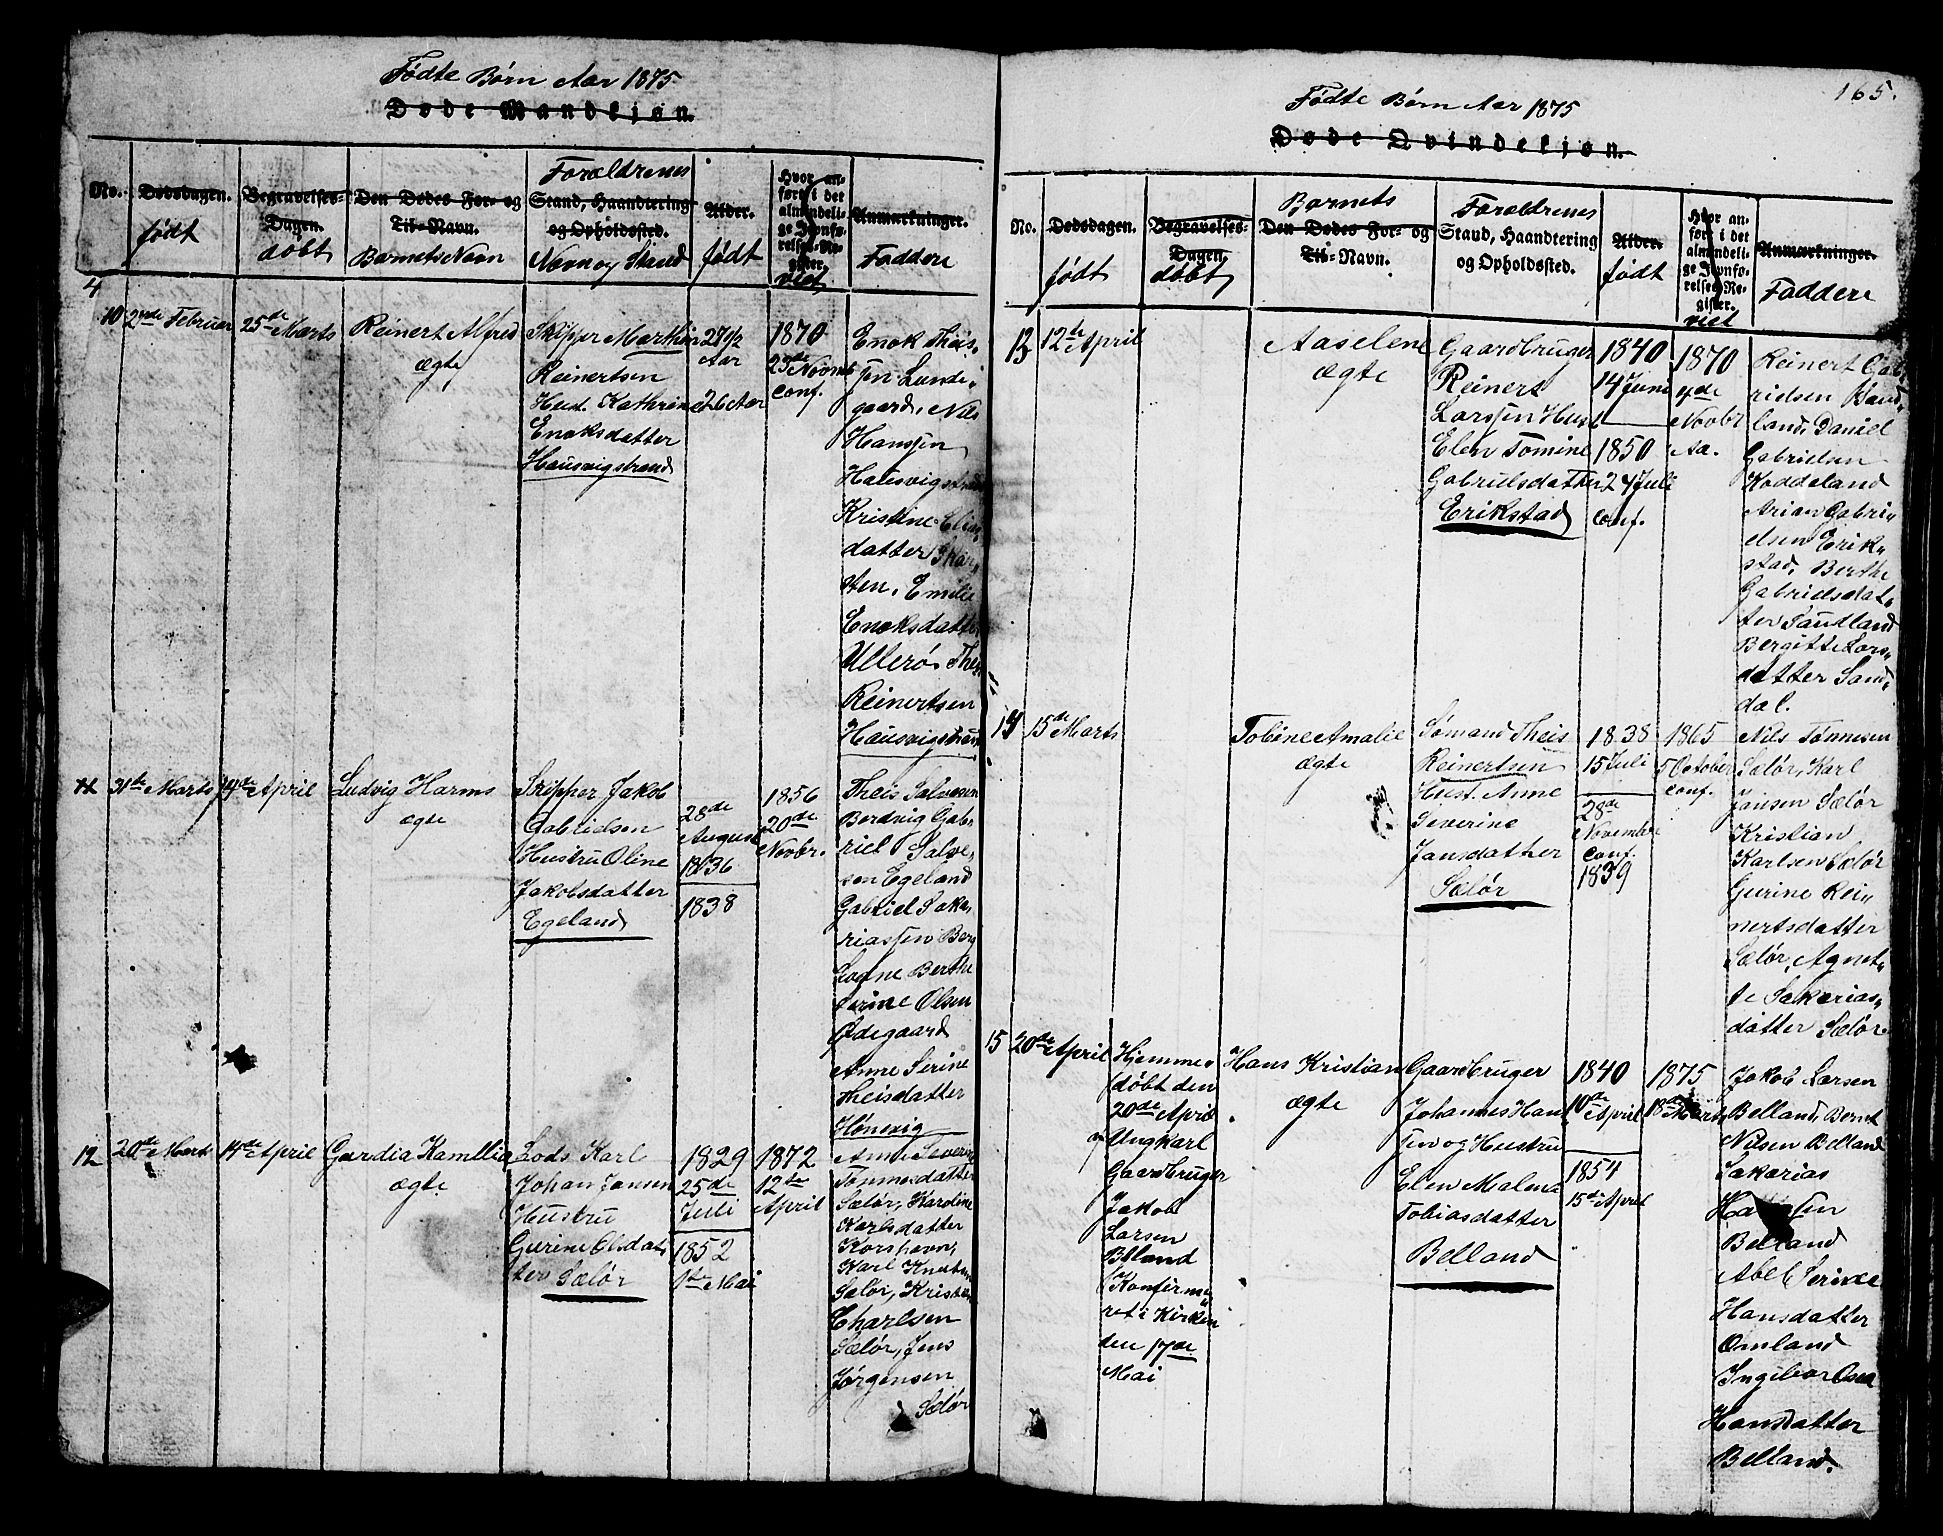 Fødte Børn Aar 1875
Døde Mandkjøn.
No.
Dødsdagen.
født
Begravelses-
Dagen.
døbt
Den Dødes For- og
Til-Navn.
Barnets Navn
Forældrenes
Stand, Haandtering
og Opholdssted.
Navn og Stand
Alder.
født
Hvor an-
ført i det
almindeli-
ge Jevnfø-
relses-Re-
gister.
viet
Anmærkninger.
Faddere
4
10
2nde Februar
25de Marts
Reinert Alfred
ægte
Skipper Marthin
Reinertsen
Hust. Kathrine
Enoksdatter
Hausvigstrand
27 1/2
Aar
26 Aar
1870
23de Novmb
conf.
Enok Theis-
sen Lunde-
gaard, Nils
Hanssen
Hausvigstrand
Kristine Elias-
datter Skar-
sten, Emilie
Enoksdatter
Ullerø, Theis
Reinertsen
Hausvigstrand
11
31te Marts
14de April
Ludvig Harms
ægte
Skipper Jakob
Gabrielsen
Hustru Oline
Jakobsdatter
Egeland
28de
August
1836
1838
1856
20de
Novbr.
Theis Salvesen
Berdvig Gab-
riel Salve-
sen Egeland
Gabriel Saka-
riassen Berg
Gogne Berthe
Serine Olsen
Ødegaard
Anne Serine
Theisdatter
Hønevig
12
20de Marts
14de April
Gardia Kamillia
ægte
Lods Karl
Johan Jansen
Hustru
Gurine Olsdat-
ter Sælør
1829
25de
Juli
1852
1ste Mai
1872
12te
April
Anne Severine
Tønnesdatter
Sælør, Karoline
Karlsdatter
Korshavn,
Karl Knutsen
Sælør, Kristian
Charlsen
Sælør, Jens
Jørgensen
Sælør
165.
Fødte Børn Aar 1875
Døde Qvindekjøn.
No.
Dødsdagen.
født
Begravelses-
Dagen
døbt
Barnets
Den Dødes For- og
Til-Navn.
Forældrenes
Stand, Haandtering
og Opholdssted.
Alder.
født
Hvor an-
ført i det
almindeli-
ge Jevnfø-
relses-Re-
gister.
viet
Anmærkninger.
Faddere
13
12te April
Aaselene
ægte
Gaardbruger
Reinert
Larssen Hust
Elen Tomine
Gabrielsdatter
Erikstad
1840
14 Juni
1850
24 Juli
conf.
1870
4de
Novbr
Aa.
Reinert Gab-
rielsen Band-
land, Daniel
Gabrielsen
Koddeland
Arian Gabri-
elsen Erik-
stad, Berthe
Gabrielsdat-
ter Saudland
Bergitte Lars-
datter Sand-
dal.
14
15de Marts
Tobine Amalie
ægte
Sømand Theis
Reinertsen
Hust. Anne
Severine
Jansdatter
Sælør
1838
15 Juli
28de
November
conf.
1839
1865
5 October
conf.
Nils Tønnesen
Sælør, Karl
Jansen Sælør
Kristian
Karlsen Sælør
Gurine Rei-
nertsdatter
Sælør, Agnet-
te Sakarias-
datter Sælør
15
20de April
Hjemme-
døbt den
20de April
af Ungkarl
Gaardbruger
Jakob
Larsen
Belland
Konfirme-
ret i Kirken
den 17de
Mai
Hans Kristian
ægte
Gaardbruger
Johannes Han-
sen og Hustru
Elen Malena
Tobiasdatter
Belland
1840
10de April
1854
15de April
1875
18de Marts
Jakob Larsen
Belland, Bernt
Nilsen Belland
Sakarias
Belland
Abel Serine
Hansdatter
Omland
Ingebor Osea
Hansdatter
Belland.